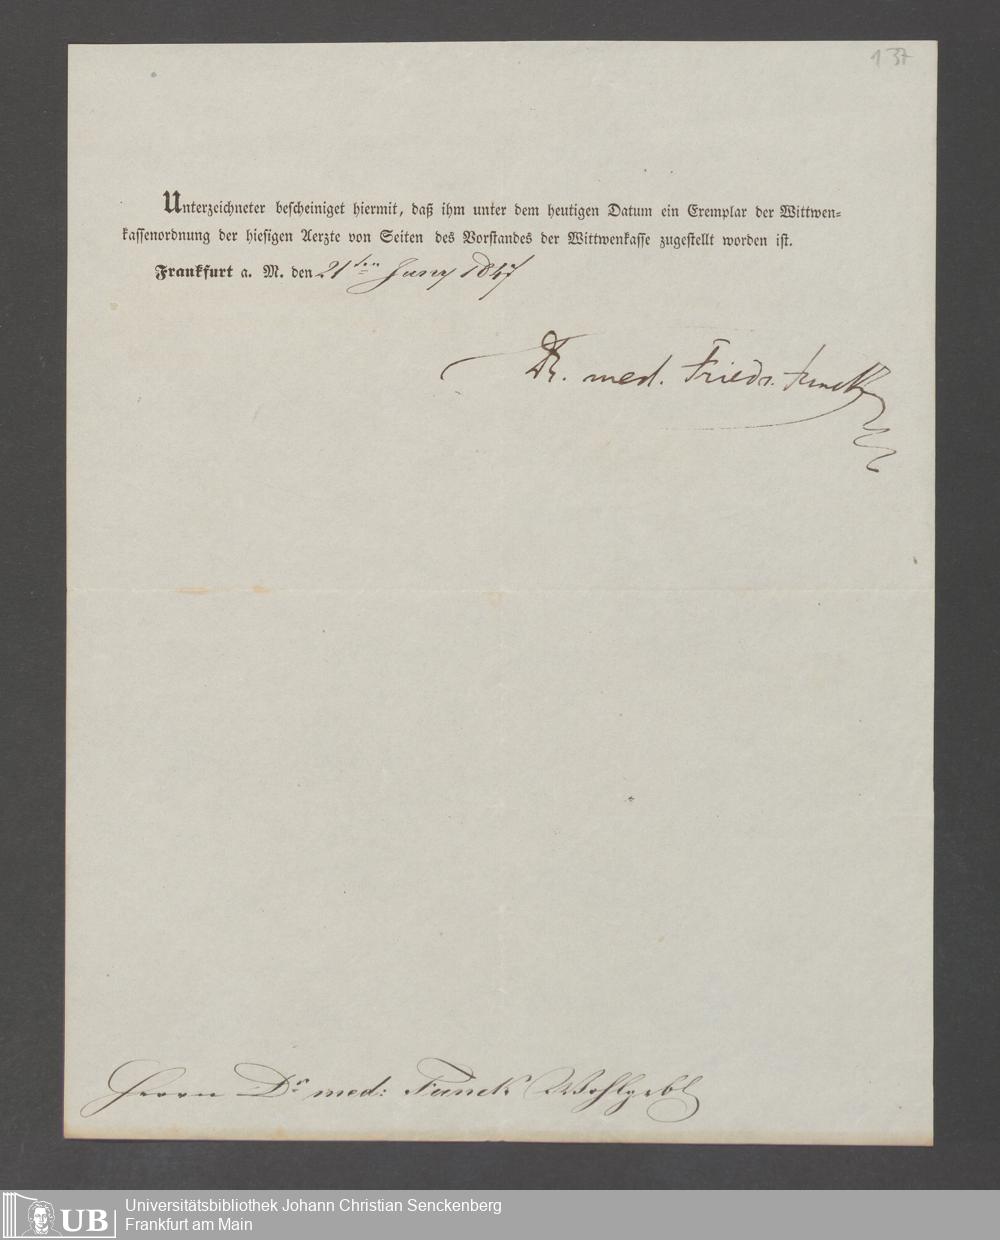 137
Unterzeichneter bescheiniget hiermit, daß ihm unter dem heutigen Datum ein Exemplar der Wittwen-
kassenordnung der hiesigen Aerzte von Seiten des Vorstandes der Wittwenkasse zugestellt worden ist.
Frankfurt a. M. den 21ten Juny 1847
Dr. med. Friedr. Funck
Herrn Dr med: Funck Wohlgebl
UB
Universitätsbibliothek Johann Christian Senckenberg
Frankfurt am Main